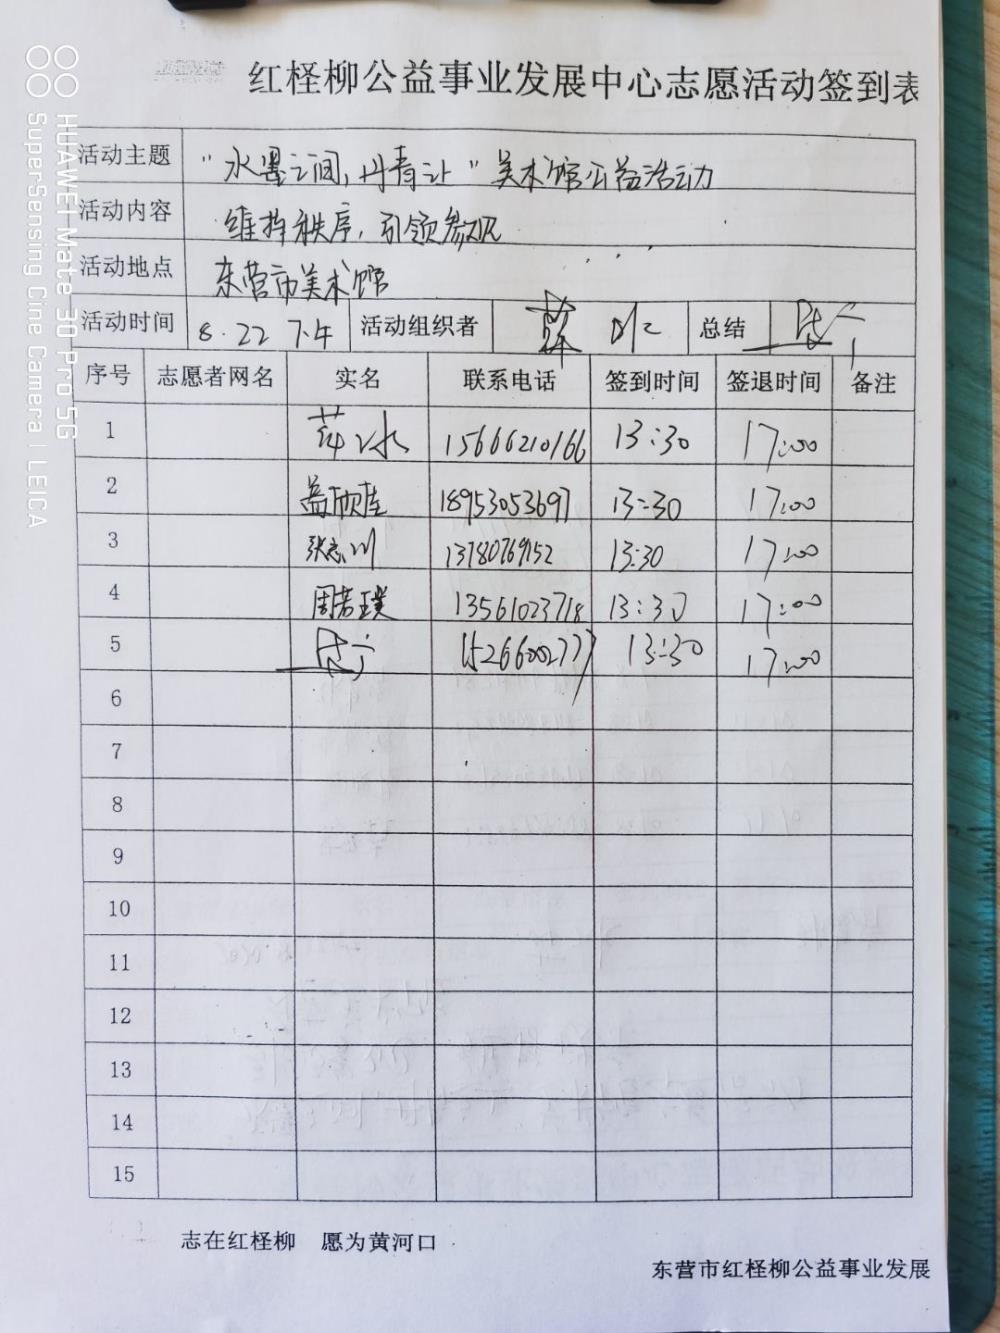 红柽柳公益事业发展中心志愿活动签到表
活动主题 "水墨之间,丹青让"美术馆公益活动
活动内容 维护秩序,引领参观
活动地点 东营市美术馆
活动时间 8.22 下午 活动组织者 薛冰 总结
序号 志愿者网名 实名 联系电话 签到时间 签退时间 备注
1 薛冰 15666210166 13:30 17:00
2 盖欣佳 18953053697 13:30 17:00
3 张志川 13780769152 13:30 17:00
4 周若璞 13561023718 13:30 17:00
5 15266002777 13:30 17:00
6
7
8
9
10
11
12
13
14
15
志在红柽柳 愿为黄河口
东营市红柽柳公益事业发展
HUAWEI Mate 30 Pro 5G
SuperSensing Cine Camera | LEICA